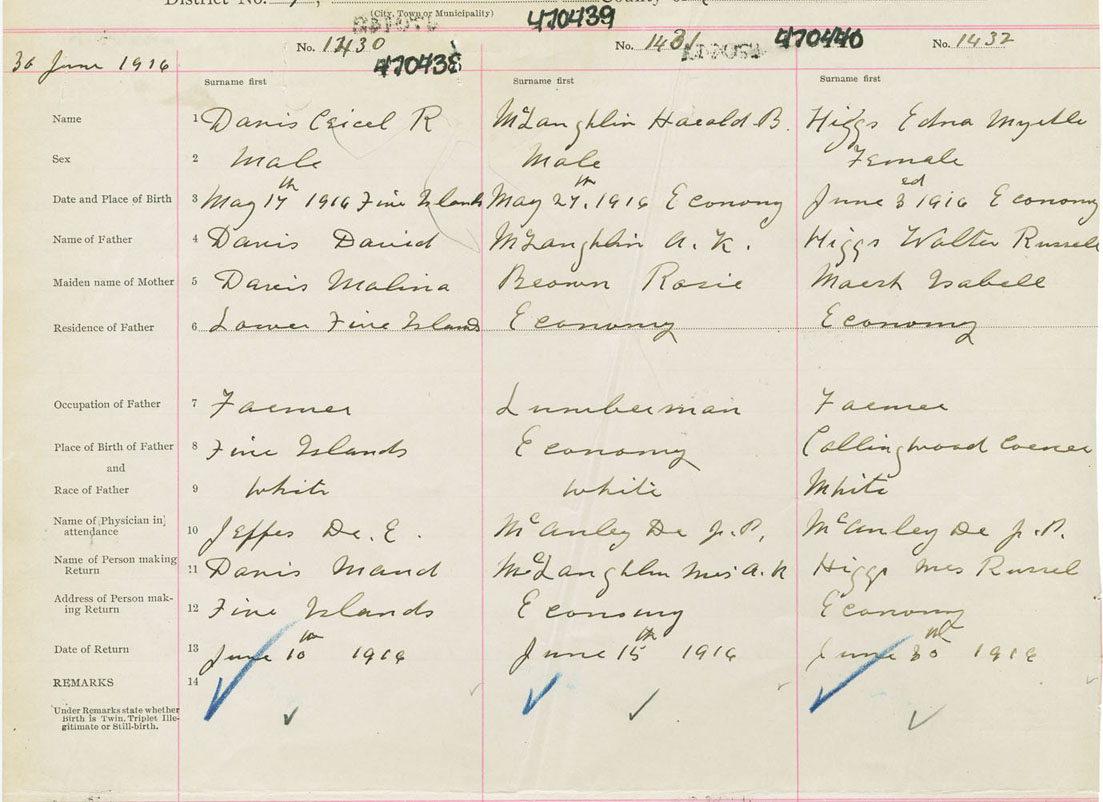 District No. 7,
(City, Town or Municipality)
470439
No. 1430
No. 1431
470440
No. 1432
30 June 1916
470438
Surname first
Surname first
Surname first
Name 1 Davis Ceicel R McLaughlin Harold B. Higgs Edna Myrtle
Sex 2 Male Male Female
Date and Place of Birth 3 May 17th 1916 Five Islands May 27th, 1916 Economy June 3rd 1916 Economy
Name of Father 4 Davis David McLaughlin A. K. Higgs Walter Russell
Maiden name of Mother 5 Davis Malina Brown Rosie Marsh Isabell
Residence of Father 6 Lower Five Islands Economy Economy
Occupation of Father 7 Farmer Lumberman Farmer
Place of Birth of Father 8 Five Islands Economy Collingwood Corner
and
Race of Father 9 White White White
Name of [Physician in] attendance 10 Jeffers Dr. E. McAuley Dr J. P. McAuley Dr J. P.
Name of Person making Return 11 Davis Maud McLaughlin Mrs A. K Higgs Mrs Russel
Address of Person making Return 12 Five Islands Economy Economy
Date of Return 13 June 10th 1916 June 15th 1916 June 30th 1916
REMARKS 14
Under Remarks state whether
Birth is Twin, Triplet Ille-
gitimate or Still-birth.